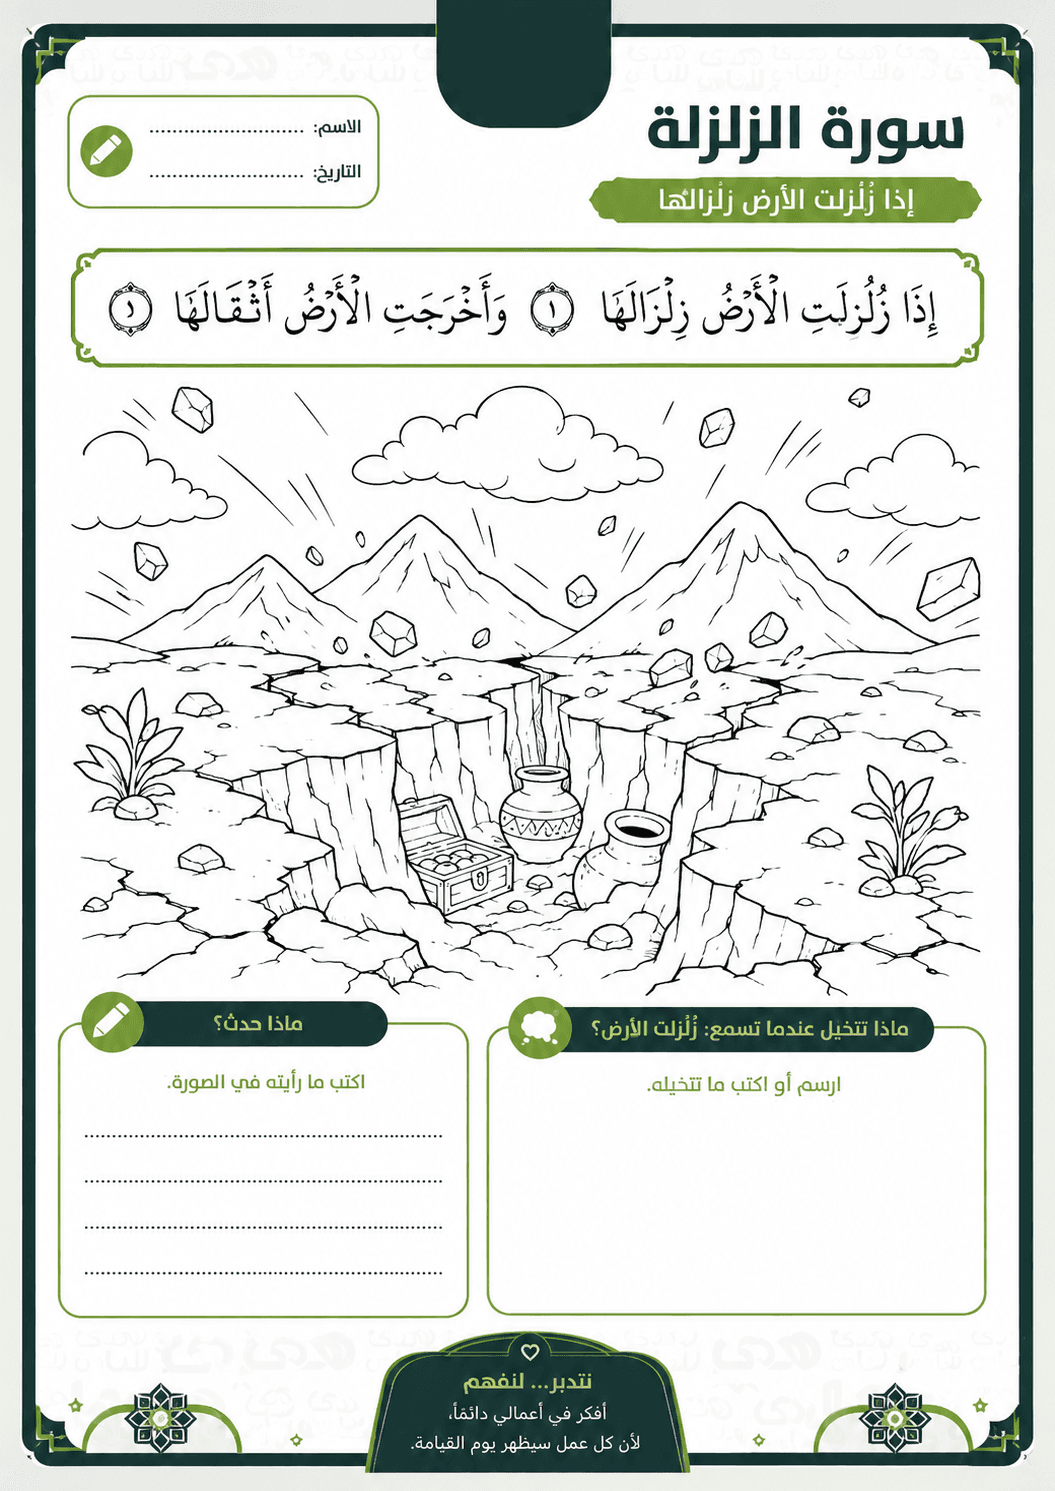 سورة الزلزلة
إذا زُلْزلت الأرض زلْزالها
الاسم: ..............................
التاريخ: ..............................
إِذَا زُلْزِلَتِ الْأَرْضُ زِلْزَالَهَا ١ وَأَخْرَجَتِ الْأَرْضُ أَثْقَالَهَا
ماذا تتخيل عندما تسمع: زُلْزلت الأرض؟
ارسم أو اكتب ما تتخيله.
ماذا حدث؟
اكتب ما رأيته في الصورة.
نتدبر... لنفهم
أفكر في أعمالي دائمًا،
لأن كل عمل سيظهر يوم القيامة.